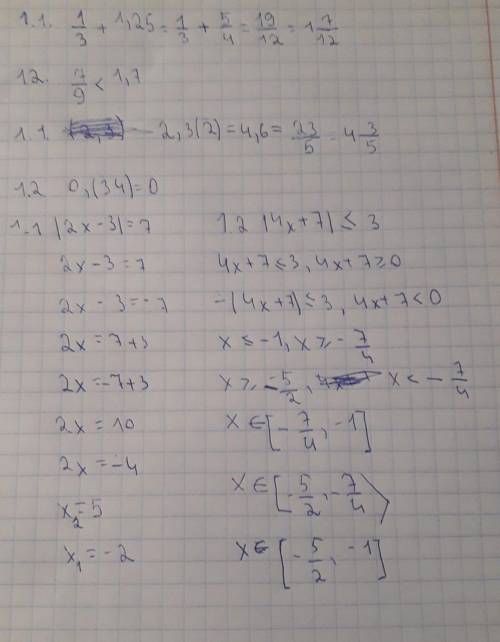 1.1. 1/3 + 1,25 = 1/3 + 5/4 = 19/12 = 1 7/12
1.2. 7/9 < 1,7
1.1. 2,3(2) = 4,6 = 23/5 = 4 3/5
1.2 0,(34) = 0
1.1 |2x - 3| = 7
2x - 3 = 7
2x - 3 = -7
2x = 7 + 3
2x = -7 + 3
2x = 10
2x = -4
x₂ = 5
x₁ = -2
1.2 |4x + 7| ≤ 3
4x + 7 ≤ 3, 4x + 7 ≥ 0
-(4x + 7) ≤ 3, 4x + 7 < 0
x ≤ -1, x ≥ -7/4
x ≥ -5/2, x < -7/4
x ∈ [-7/4, -1]
x ∈ [-5/2, -7/4⟩
x ∈ [-5/2, -1]